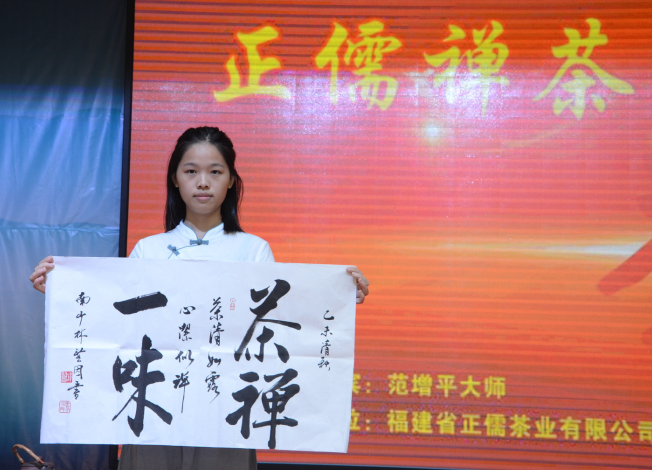 正儒禅茶
宾：范增平大师
位：福建省正儒茶业有限公司
乙未清秋
茶禅
茶清如露
心潔似禅
一味
南少林書